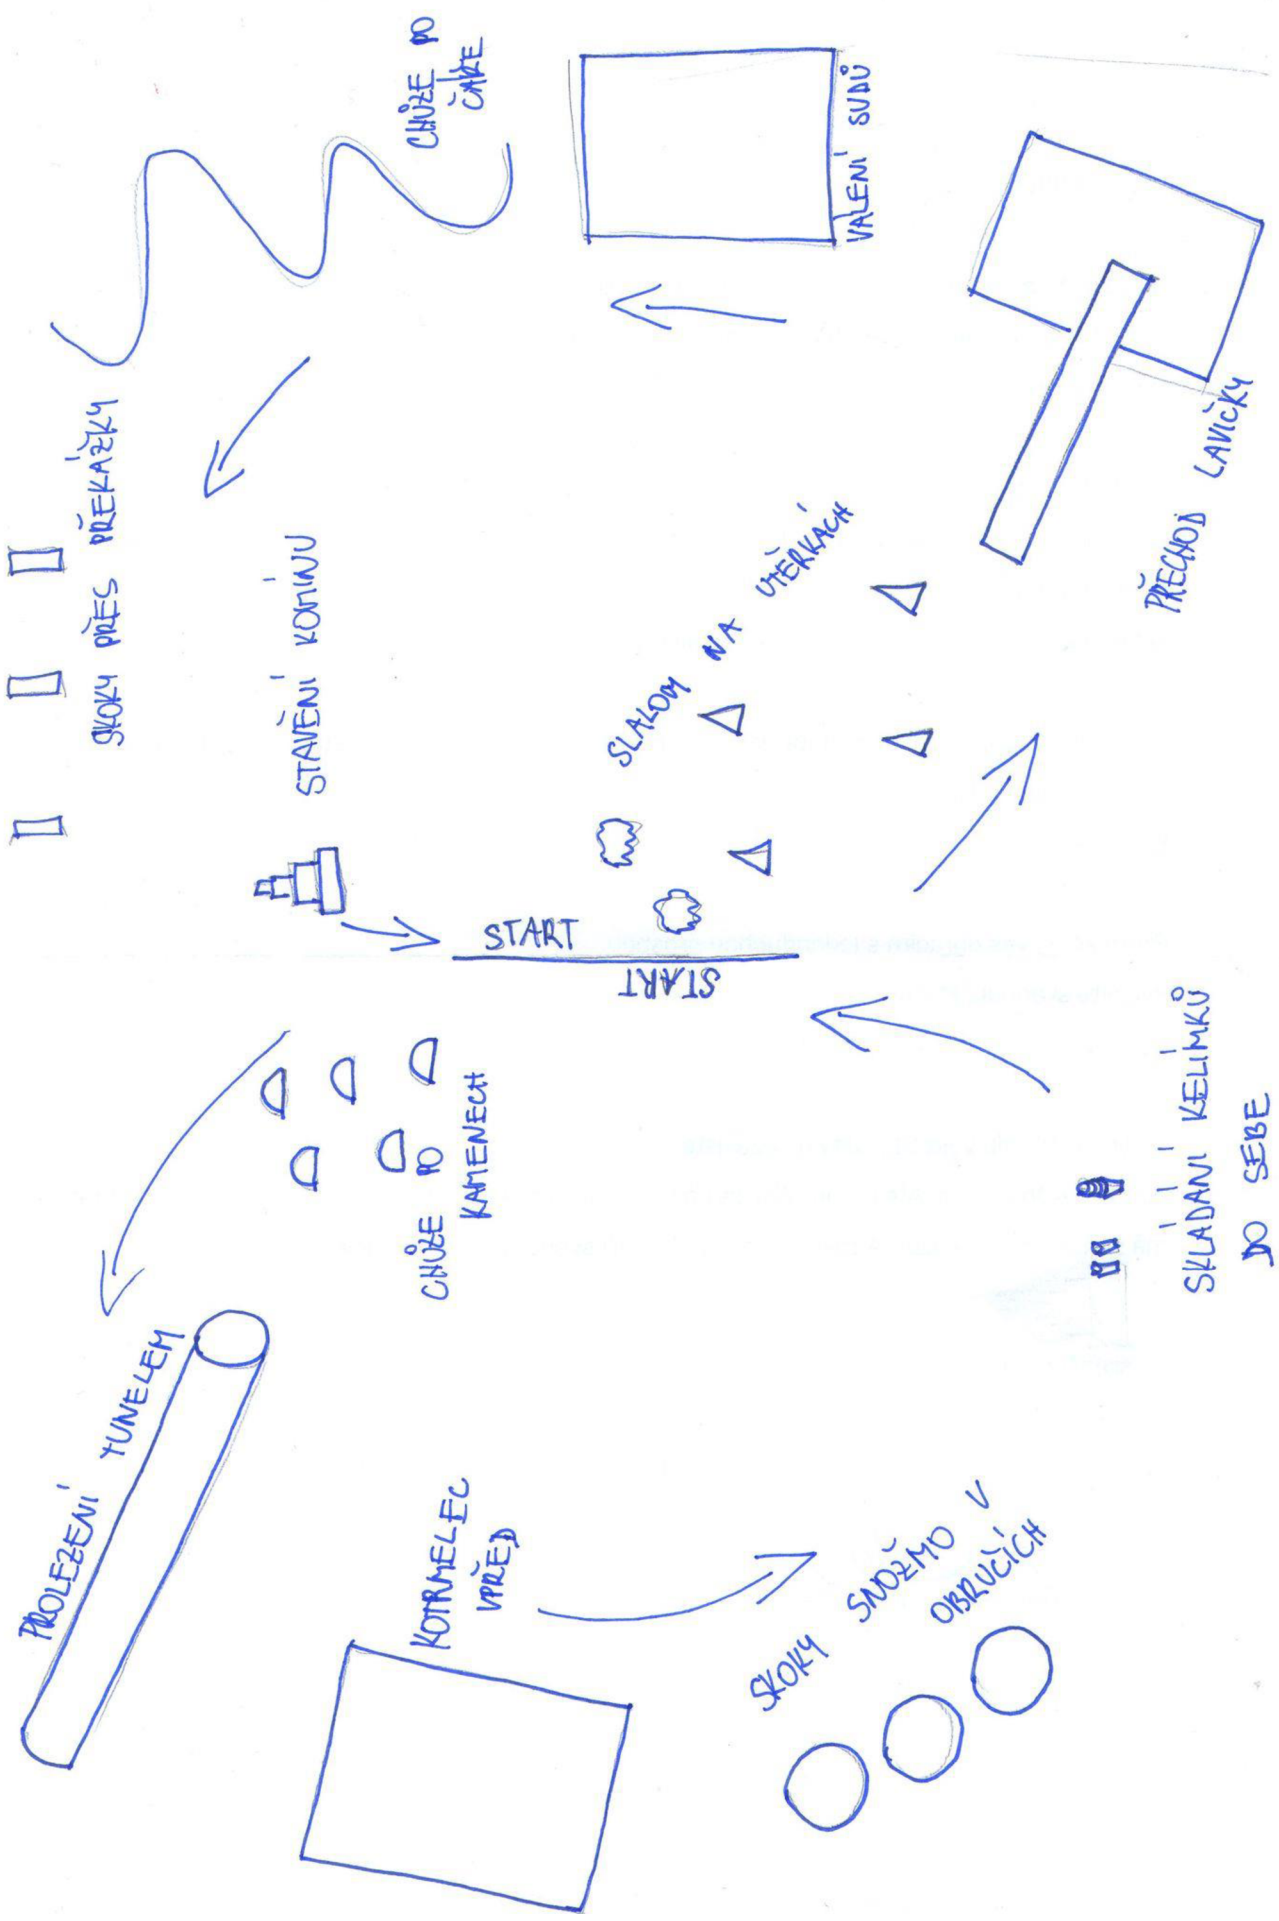 CHŮZE PO
ČÁŘE
VÁLENÍ SUDŮ
SKOKY PŘES PŘEKÁŽKY
STAVĚNÍ KOMÍNU
SLALOM NA UTĚRKÁCH
PŘECHOD LAVIČKY
START
START
CHŮZE PO
KAMENECH
SKLÁDÁNÍ KELÍMKŮ
DO SEBE
PROLEZENÍ TUNELEM
KOTRMELEC
VPŘED
SKOKY SNOŽMO V
OBRUČÍCH